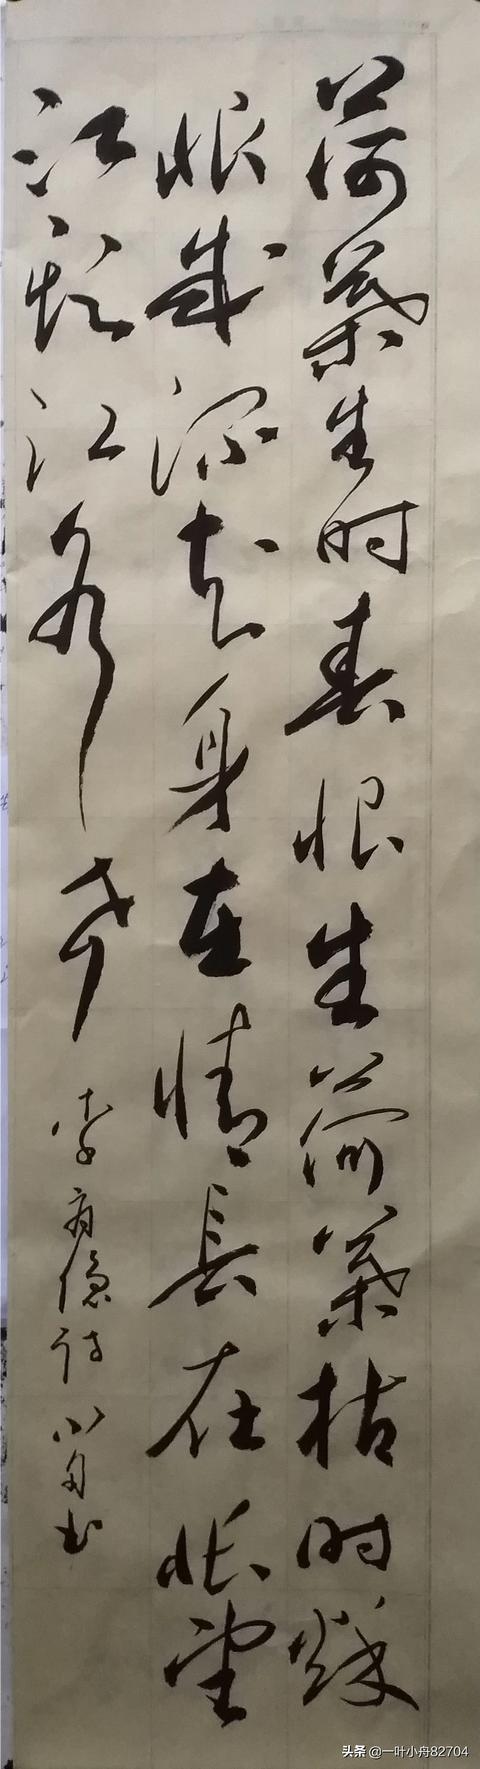 荷葉生时春恨生荷葉枯时秋
恨成深知身在情長在悵望
江頭江水声 李商隐诗 小舟书
头条 @一叶小舟82704